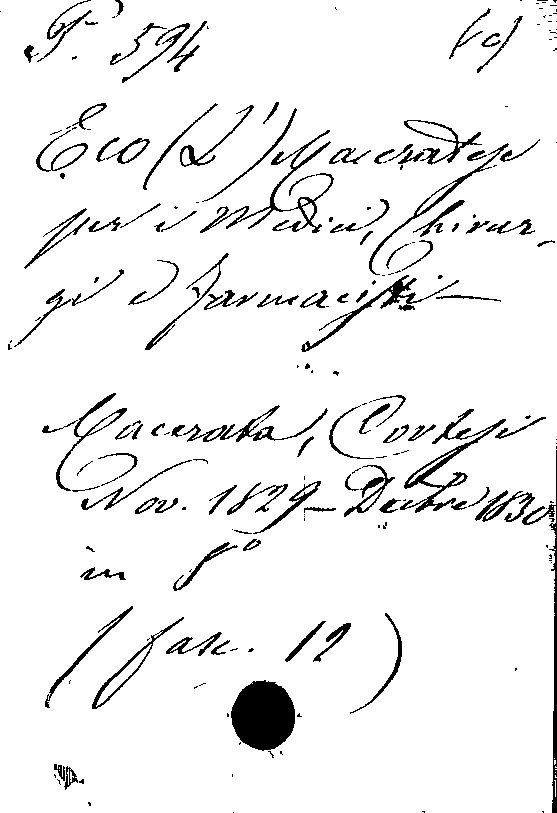 P. 594 (c)
Eco (L') Maceratese
per i Medici, Chirur-
gi e Farmacisti —
Macerata, Cortesi
Nov. 1829 — Decbre 1830
in 8°
(fasc. 12)